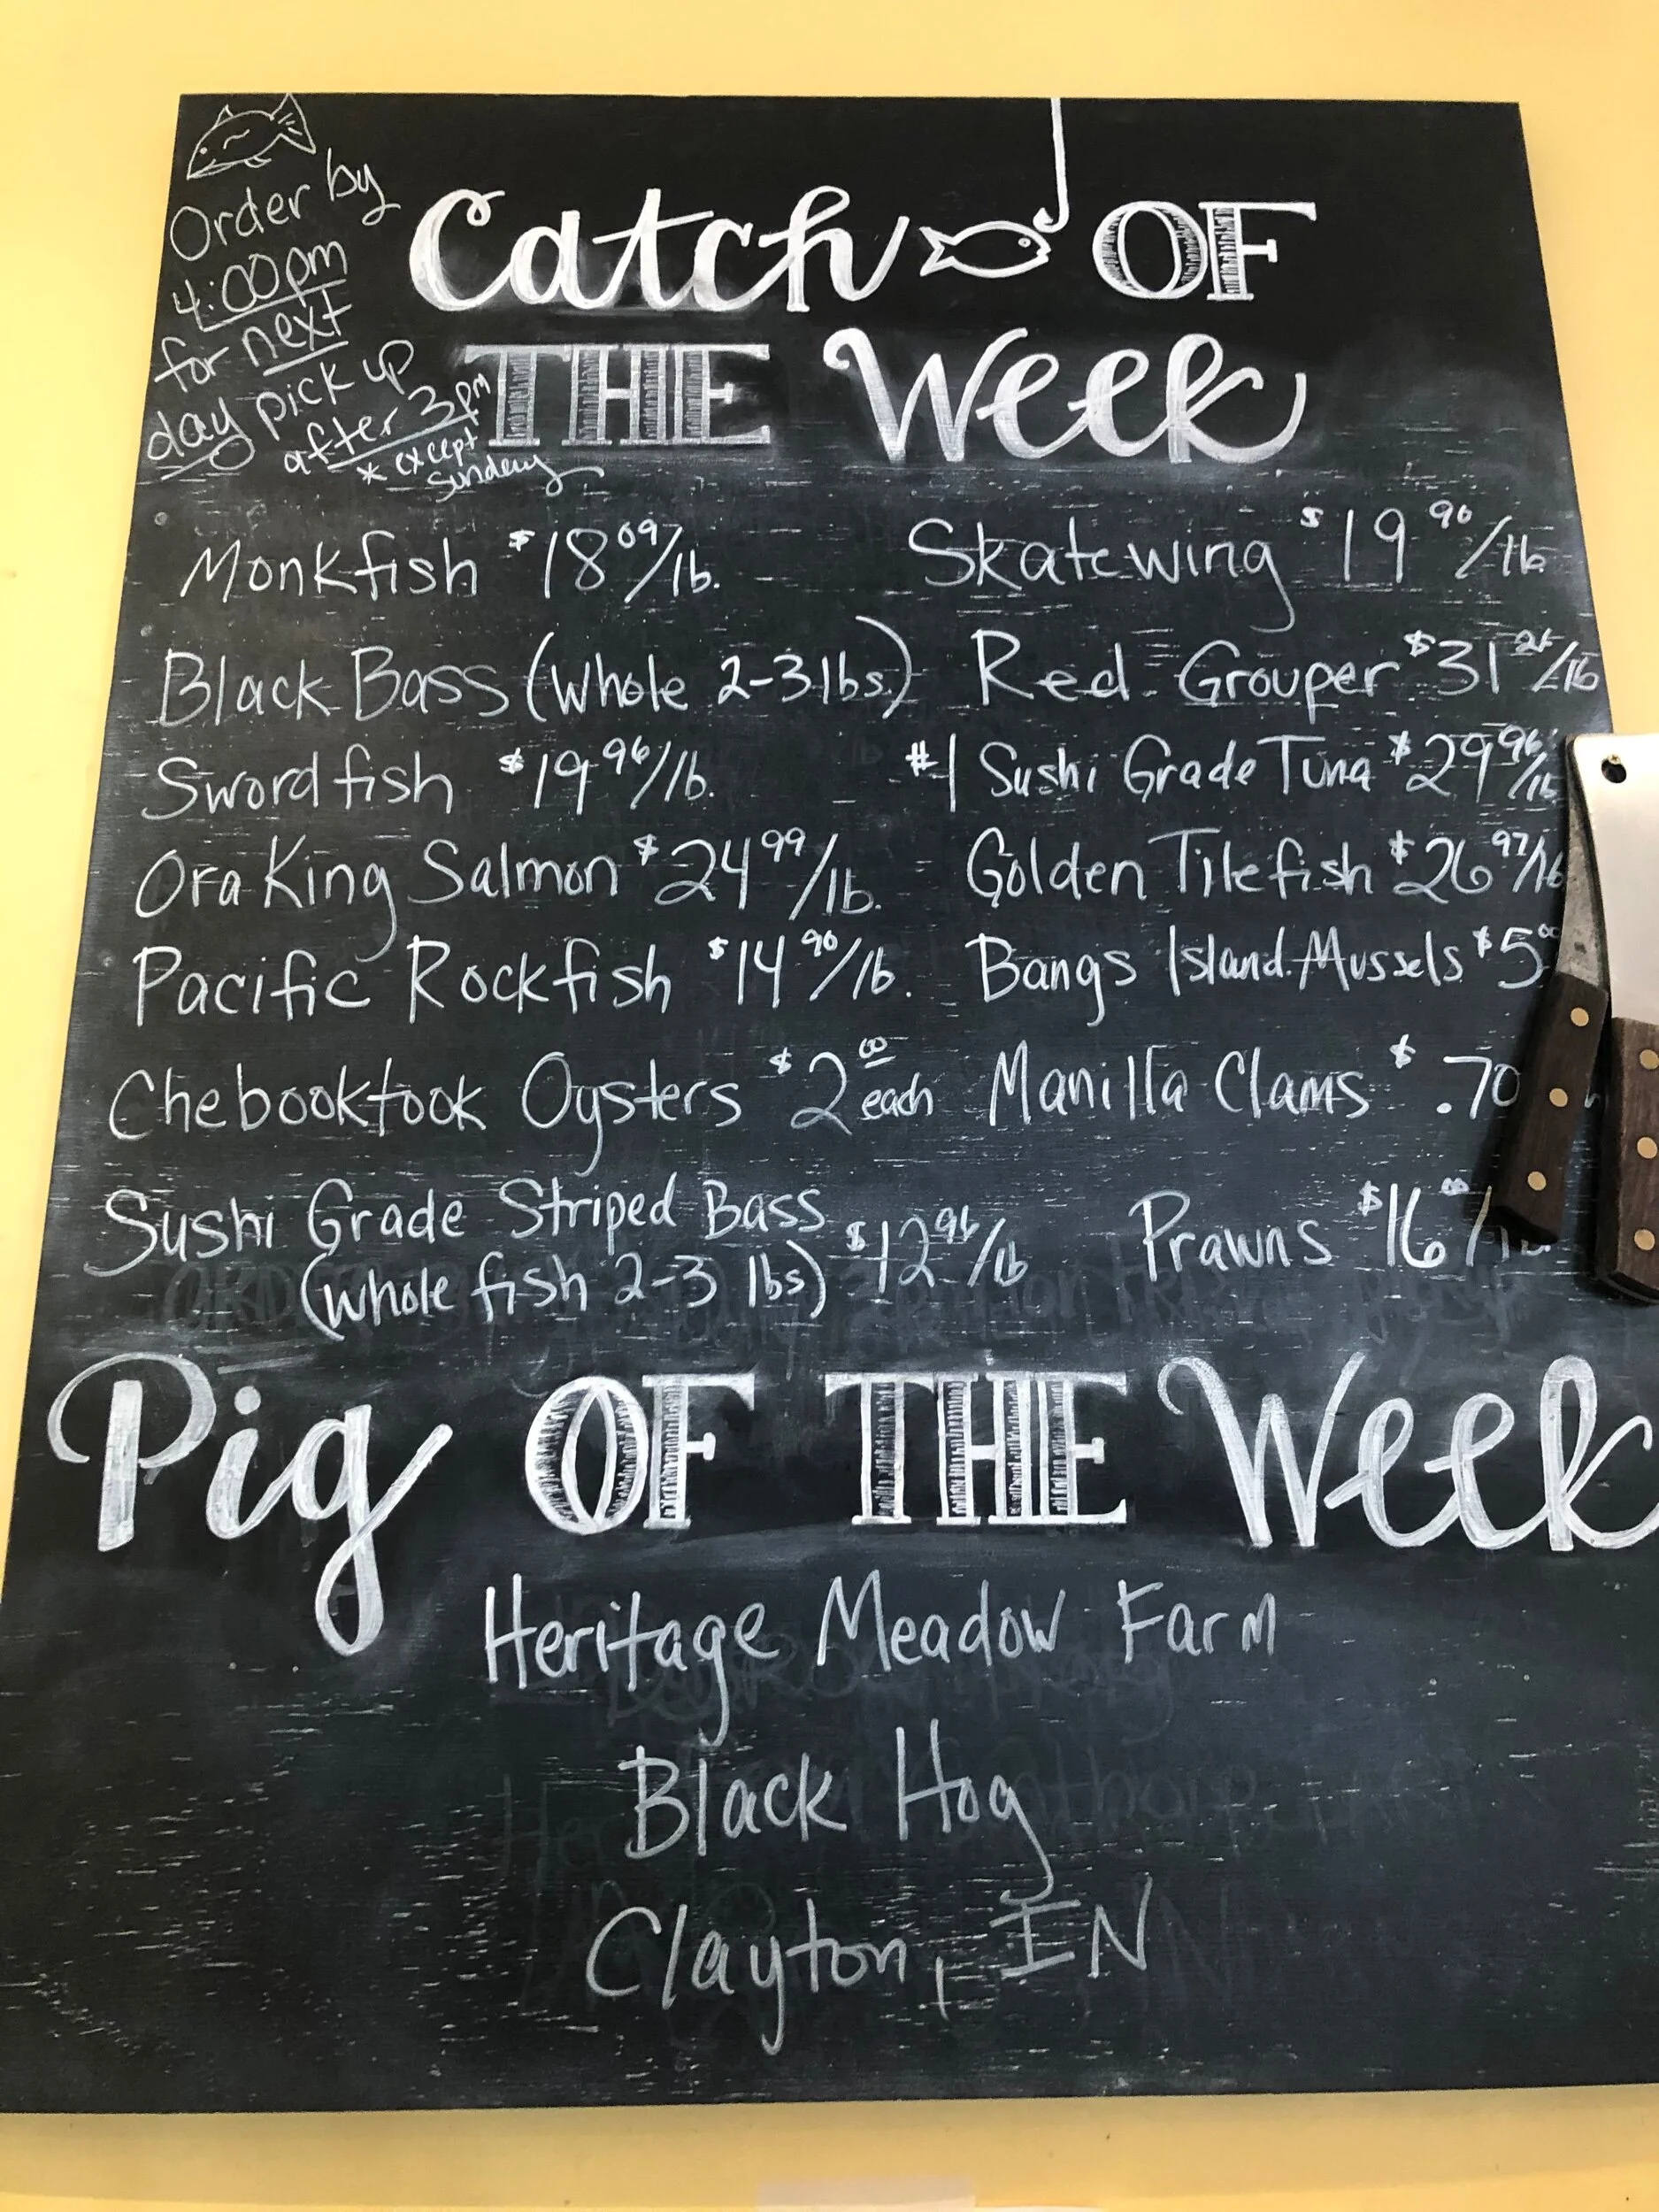 Order by
4:00pm
for next
day pick up
after 3pm
* except
Sunday
Catch OF
THE Week
Monkfish $18.09/lb.
Skatewing $19.90/lb
Black Bass (whole 2-3 lbs.)
Red Grouper $31 /lb
Swordfish $19.96/lb.
#1 Sushi Grade Tuna $29.96/lb
Ora King Salmon $24.99/lb.
Golden Tilefish $26.97/lb
Pacific Rockfish $14.90/lb.
Bangs Island Mussels $5.00
Chebooktook Oysters $2.00 each
Manilla Clams $.70
Sushi Grade Striped Bass
(whole fish 2-3 lbs) $12.96/lb
Prawns $16.00/lb
Pig OF THE Week
Heritage Meadow Farm
Black Hog
Clayton, IN